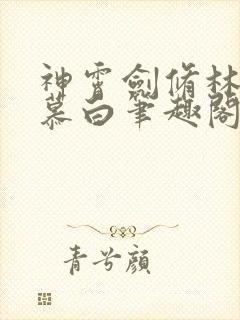 神霄劍脩林
慕白筆趣閣
青兮顏